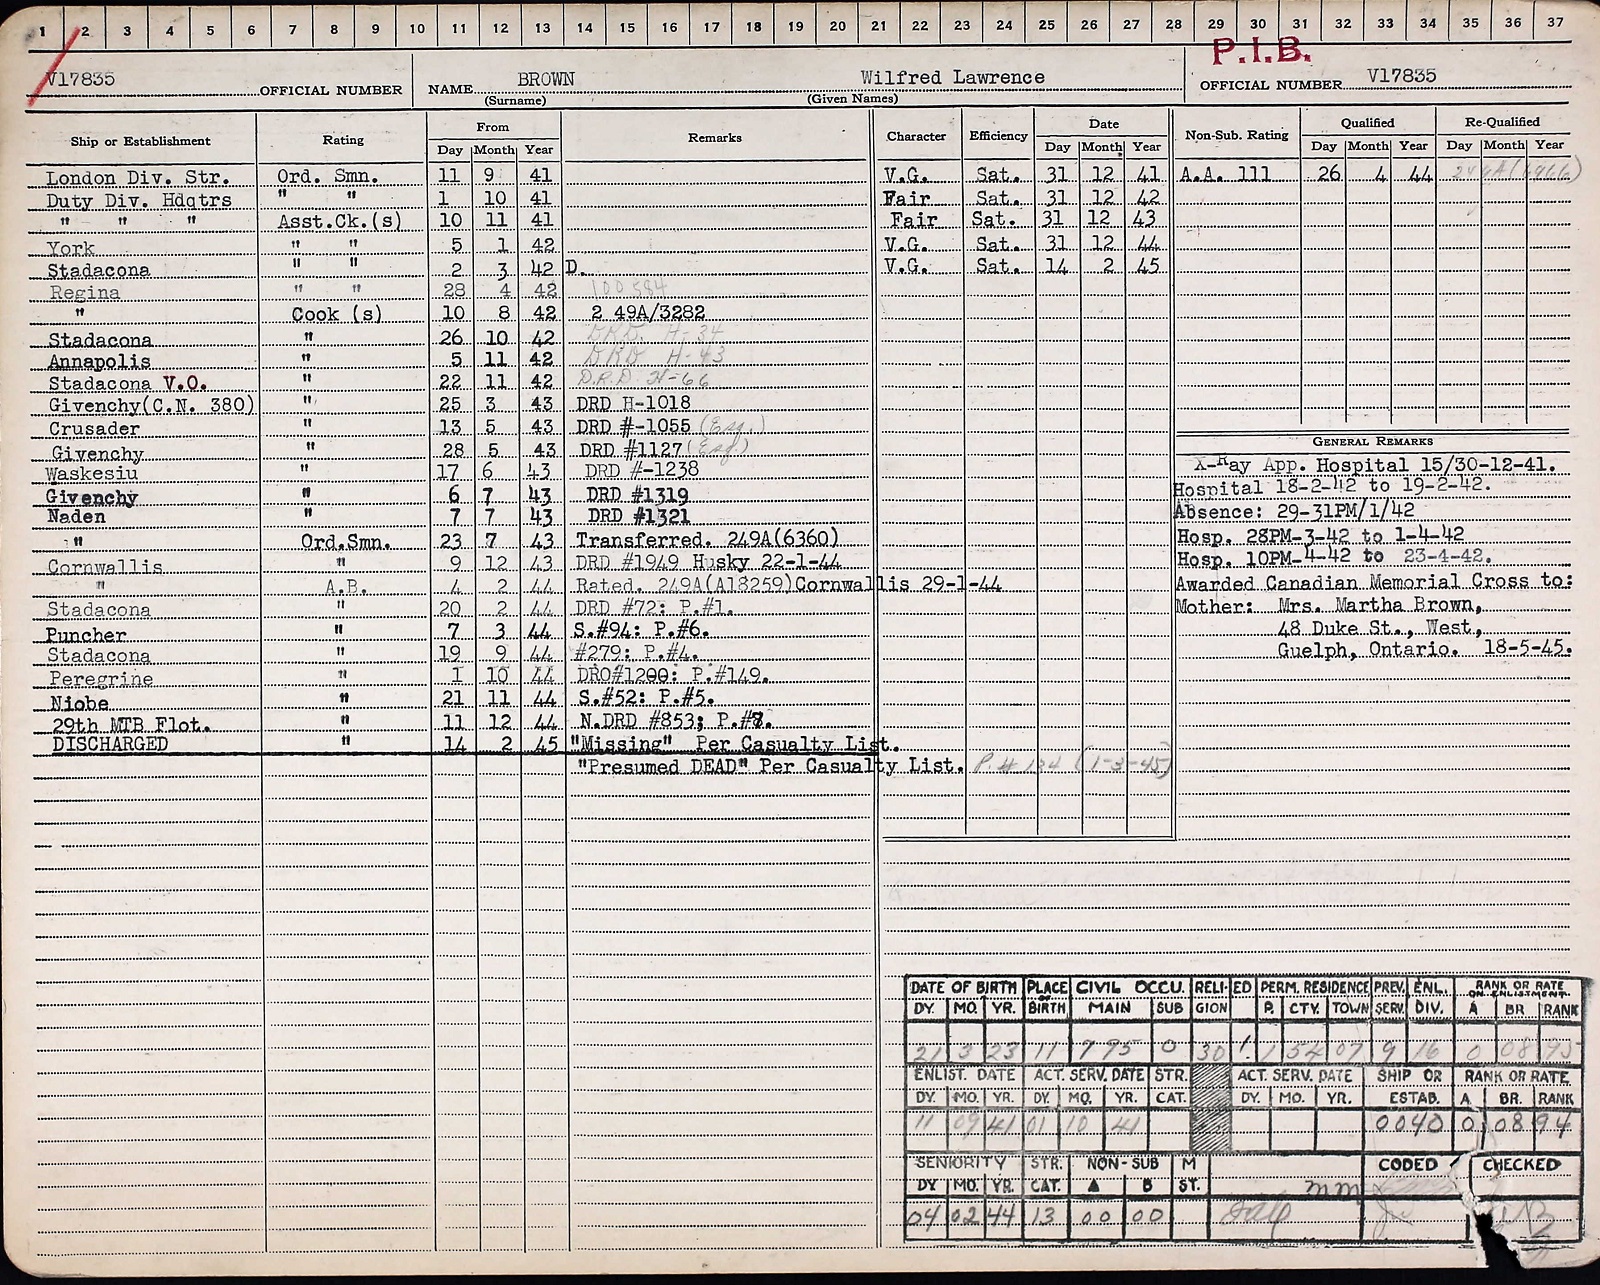 1 2 3 4 5 6 7 8 9 10 11 12 13 14 15 16 17 18 19 20 21 22 23 24 25 26 27 28 29 30 31 32 33 34 35 36 37
P.I.B.
V17835 OFFICIAL NUMBER NAME BROWN Wilfred Lawrence OFFICIAL NUMBER V17835
(Surname) (Given Names)
Ship or Establishment Rating From Remarks
Day Month Year
London Div. Str. Ord. Smn. 11 9 41
Duty Div. Hdqtrs " " 1 10 41
" " " Asst.Ck.(s) 10 11 41
York " " 5 1 42
Stadacona " " 2 3 42 D.
Regina " " 28 4 42 100584
" Cook (s) 10 8 42 2 49A/3282
Stadacona " 26 10 42 DRD. H-34
Annapolis " 5 11 42 DRD H-43
Stadacona V.O. " 22 11 42 D.R.D. H-66
Givenchy(C.N. 380) " 25 3 43 DRD H-1018
Crusader " 13 5 43 DRD #-1055 (Esq.)
Givenchy " 28 5 43 DRD #1127 (Esq.)
Waskesiu " 17 6 43 DRD #-1238
Givenchy " 6 7 43 DRD #1319
Naden " 7 7 43 DRD #1321
" Ord.Smn. 23 7 43 Transferred. 249A(6360)
Cornwallis " 9 12 43 DRD #1949 Husky 22-1-44
" A.B. 4 2 44 Rated. 249A(A18259)Cornwallis 29-1-44
Stadacona " 20 2 44 DRD #72: P.#1.
Puncher " 7 3 44 S.#94: P.#6.
Stadacona " 19 9 44 #279: P.#4.
Peregrine " 1 10 44 DRO#1200: P.#149.
Niobe " 21 11 44 S.#52: P.#5.
29th MTB Flot. " 11 12 44 N.DRD #853; P.#7.
DISCHARGED " 14 2 45 "Missing" Per Casualty List.
"Presumed DEAD" Per Casualty List. P.# 134 (1-3-45)
Character Efficiency Date
Day Month Year
V.G. Sat. 31 12 41
Fair Sat. 31 12 42
Fair Sat. 31 12 43
V.G. Sat. 31 12 44
V.G. Sat. 14 2 45
Non-Sub. Rating Qualified Re-Qualified
Day Month Year Day Month Year
A.A. 111 26 4 44
GENERAL REMARKS
X-Ray App. Hospital 15/30-12-41.
Hospital 18-2-42 to 19-2-42.
Absence: 29-31PM/1/42
Hosp. 28PM-3-42 to 1-4-42
Hosp. 10PM-4-42 to 23-4-42.
Awarded Canadian Memorial Cross to:
Mother: Mrs. Martha Brown,
48 Duke St., West,
Guelph, Ontario. 18-5-45.
DATE OF BIRTH PLACE OF BIRTH CIVIL OCCU. RELIGION ED PERM. RESIDENCE PREV. SERV. ENL. DIV. RANK OR RATE ON ENLISTMENT
DY. MO. YR. MAIN SUB P. CTY. TOWN A BR. RANK
21 3 23 11 795 0 30 1. 1 54 07 9 16 0 08 95
ENLIST. DATE ACT. SERV. DATE STR. ACT. SERV. DATE SHIP OR RANK OR RATE
DY. MO. YR. DY. MO. YR. CAT. DY. MO. YR. ESTAB. A BR. RANK
11 09 41 01 10 41 0040 0 08 94
SENIORITY STR. NON-SUB M CODED CHECKED
DY MO. YR. CAT. A B ST.
04 02 44 13 00 00